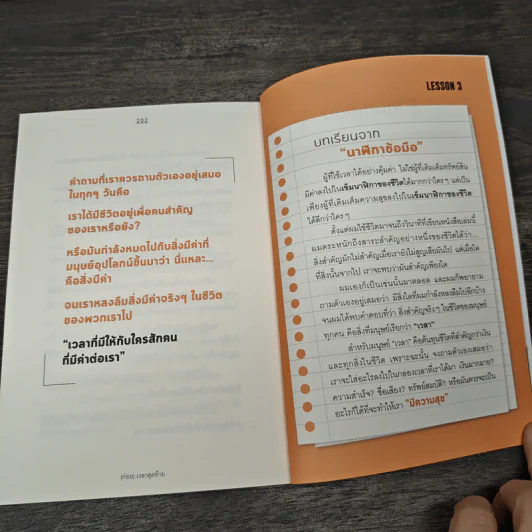 202
คำถามที่เราควรถามตัวเองอยู่เสมอ
ในทุกๆ วันคือ
เราได้มีชีวิตอยู่เพื่อคนสำคัญ
ของเราหรือยัง?
หรือมันกำลังหมดไปกับสิ่งมีค่าที่
มนุษย์อุปโลกน์ขึ้นมาว่า นี่แหละ...
คือสิ่งมีค่า
จนเราหลงลืมสิ่งมีค่าจริงๆ ในชีวิต
ของพวกเราไป
“เวลาที่มีให้กับใครสักคน
ที่มีค่าต่อเรา”
(ก่อน) เวลาสุดท้าย
LESSON 3
บทเรียนจาก
“นาฬิกาข้อมือ”
ผู้ที่ใช้เวลาได้อย่างคุ้มค่า ไม่ใช่ผู้ที่เติมเต็มทรัพย์สิน
มีค่าลงไปในเข็มนาฬิกาของชีวิตได้มากกว่าใครๆ แต่เป็น
เพียงผู้ที่เติมเต็มความสุขลงไปในเข็มนาฬิกาของชีวิต
ได้ดีกว่าใครๆ
ตั้งแต่ผมใช้ชีวิตมาจนถึงวันที่ที่เขียนหนังสือเล่มนี้
ผมตระหนักถึงสาระสำคัญอย่างหนึ่งของชีวิตได้ว่า...
สิ่งสำคัญมักไม่สำคัญเมื่อเรายังไม่สูญเสียมันไป แต่เมื่อใด
ที่สิ่งนั้นจากไป เราจะพบว่ามันสำคัญเพียงใด
ผมเองก็เป็นเช่นนั้นมาตลอด และผมก็พยายาม
ถามตัวเองอยู่เสมอว่า มีสิ่งใดที่ผมกำลังหลงลืมไปอีกบ้าง
จนผมได้พบคำตอบที่ว่า สิ่งสำคัญจริงๆ ในชีวิตของมนุษย์
ทุกคน คือสิ่งที่มนุษย์เรียกว่า “เวลา”
สำหรับมนุษย์ “เวลา” คือต้นทุนชีวิตที่สำคัญกว่าเงิน
และทุกสิ่งในชีวิต เพราะฉะนั้น จงถามตัวเองเสมอว่า
เราจะใส่อะไรลงไปในกล่องเวลาที่เราได้มา เงินมากมาย?
ความสำเร็จ? ชื่อเสียง? ทรัพย์สมบัติ? หรือมันควรจะเป็น
อะไรก็ได้ที่จะทำให้เรา “มีความสุข”